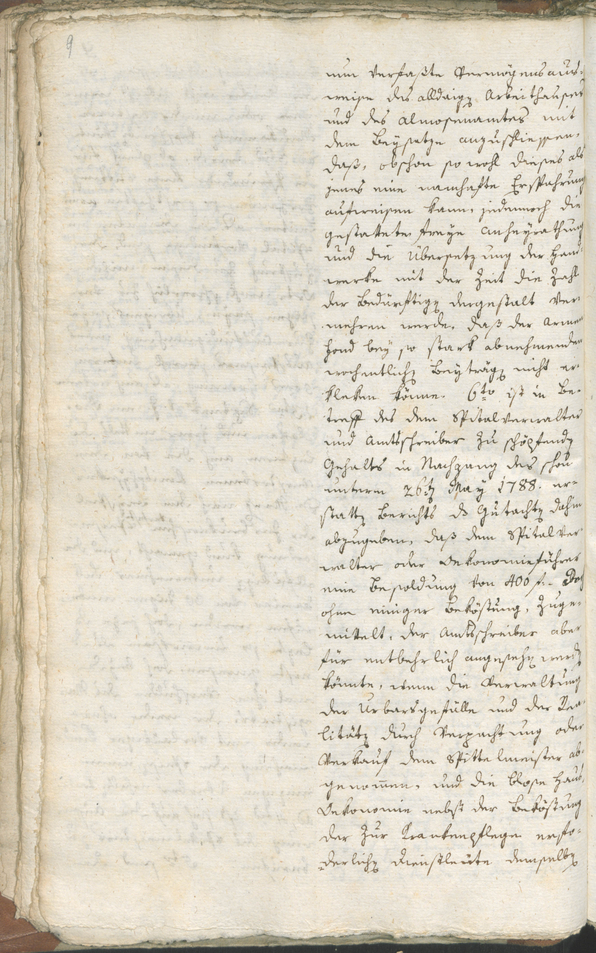 9
nun verfaßte Vermögens aus-
weise des alldaigen Arbeithauses
und des Almosenamtes mit
dem Beysatze anzuschliessen,
daß, obschon so wohl dieses als
jenes eine namhafte Ersparung
aufweisen kann, jedennoch die
gestattete freye Anheyrathung
und die Übersetzung der Hand
werke mit der Zeit die Zahl
der Bedürftigen dergestalt ver
mehren werde, daß der Armen
fond bey so stark abnehmenden
wochentlichen Beyträgen nicht er
kleken könne. 6to ist in Be-
treff des dem Spitalverwalter
und Amtschreiber zu schöpfenden
Gehalts in Nachgang des schon
unterm 26ten May 1788. er-
statten Berichts das Gutachten dahin
abzugeben, daß dem Spitalver
walter oder Oekonomieführer
eine Besoldung von 400 f. doch
ohne einiger Beköstung, zuge-
mittelt, der Amtschreiber aber
für entbehrlich angesehen werden
könnte, wenn die Verwaltung
der Urbarsgefälle und der Rea
litäten durch Verpachtung oder
Verkauf dem Spittelmeister ab
genommen, und die blose Haus
Oekonomie nebst der Beköstung
der zur Krankenpflege erfo-
derlichen Dienstleute demselben